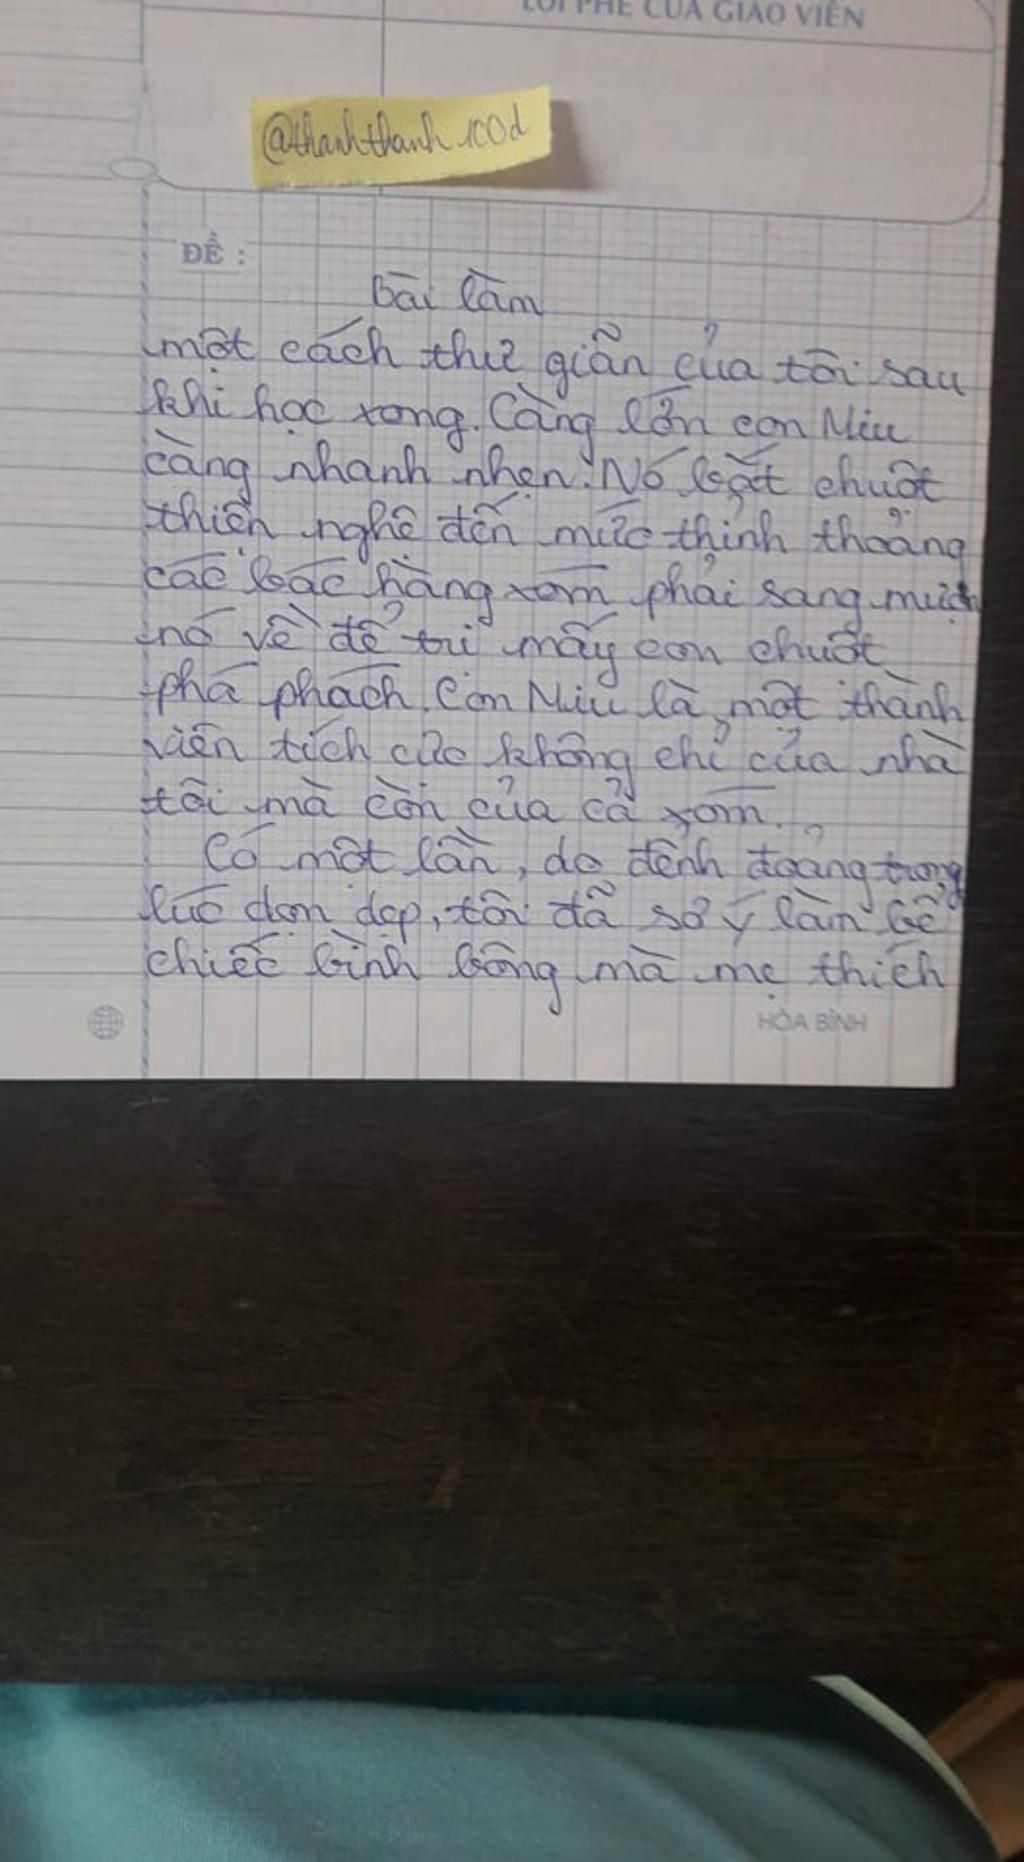 LỜI PHÊ CỦA GIÁO VIÊN
@thanhthanh100d
ĐỀ :
Bài làm
một cách thư giãn của tôi sau
khi học xong. Càng lớn con Miu
càng nhanh nhẹn. Nó bắt chuột
thiện nghệ đến mức thỉnh thoảng
các bác hàng xóm phải sang mượn
nó về để trị mấy con chuột
phá phách. Con Miu là một thành
viên tích cực không chỉ của nhà
tôi mà còn của cả xóm.
Có một lần, do đểnh đoảng trong
lúc dọn dẹp, tôi đã sơ ý làm bể
chiếc bình bông mà mẹ thích
HÒA BÌNH